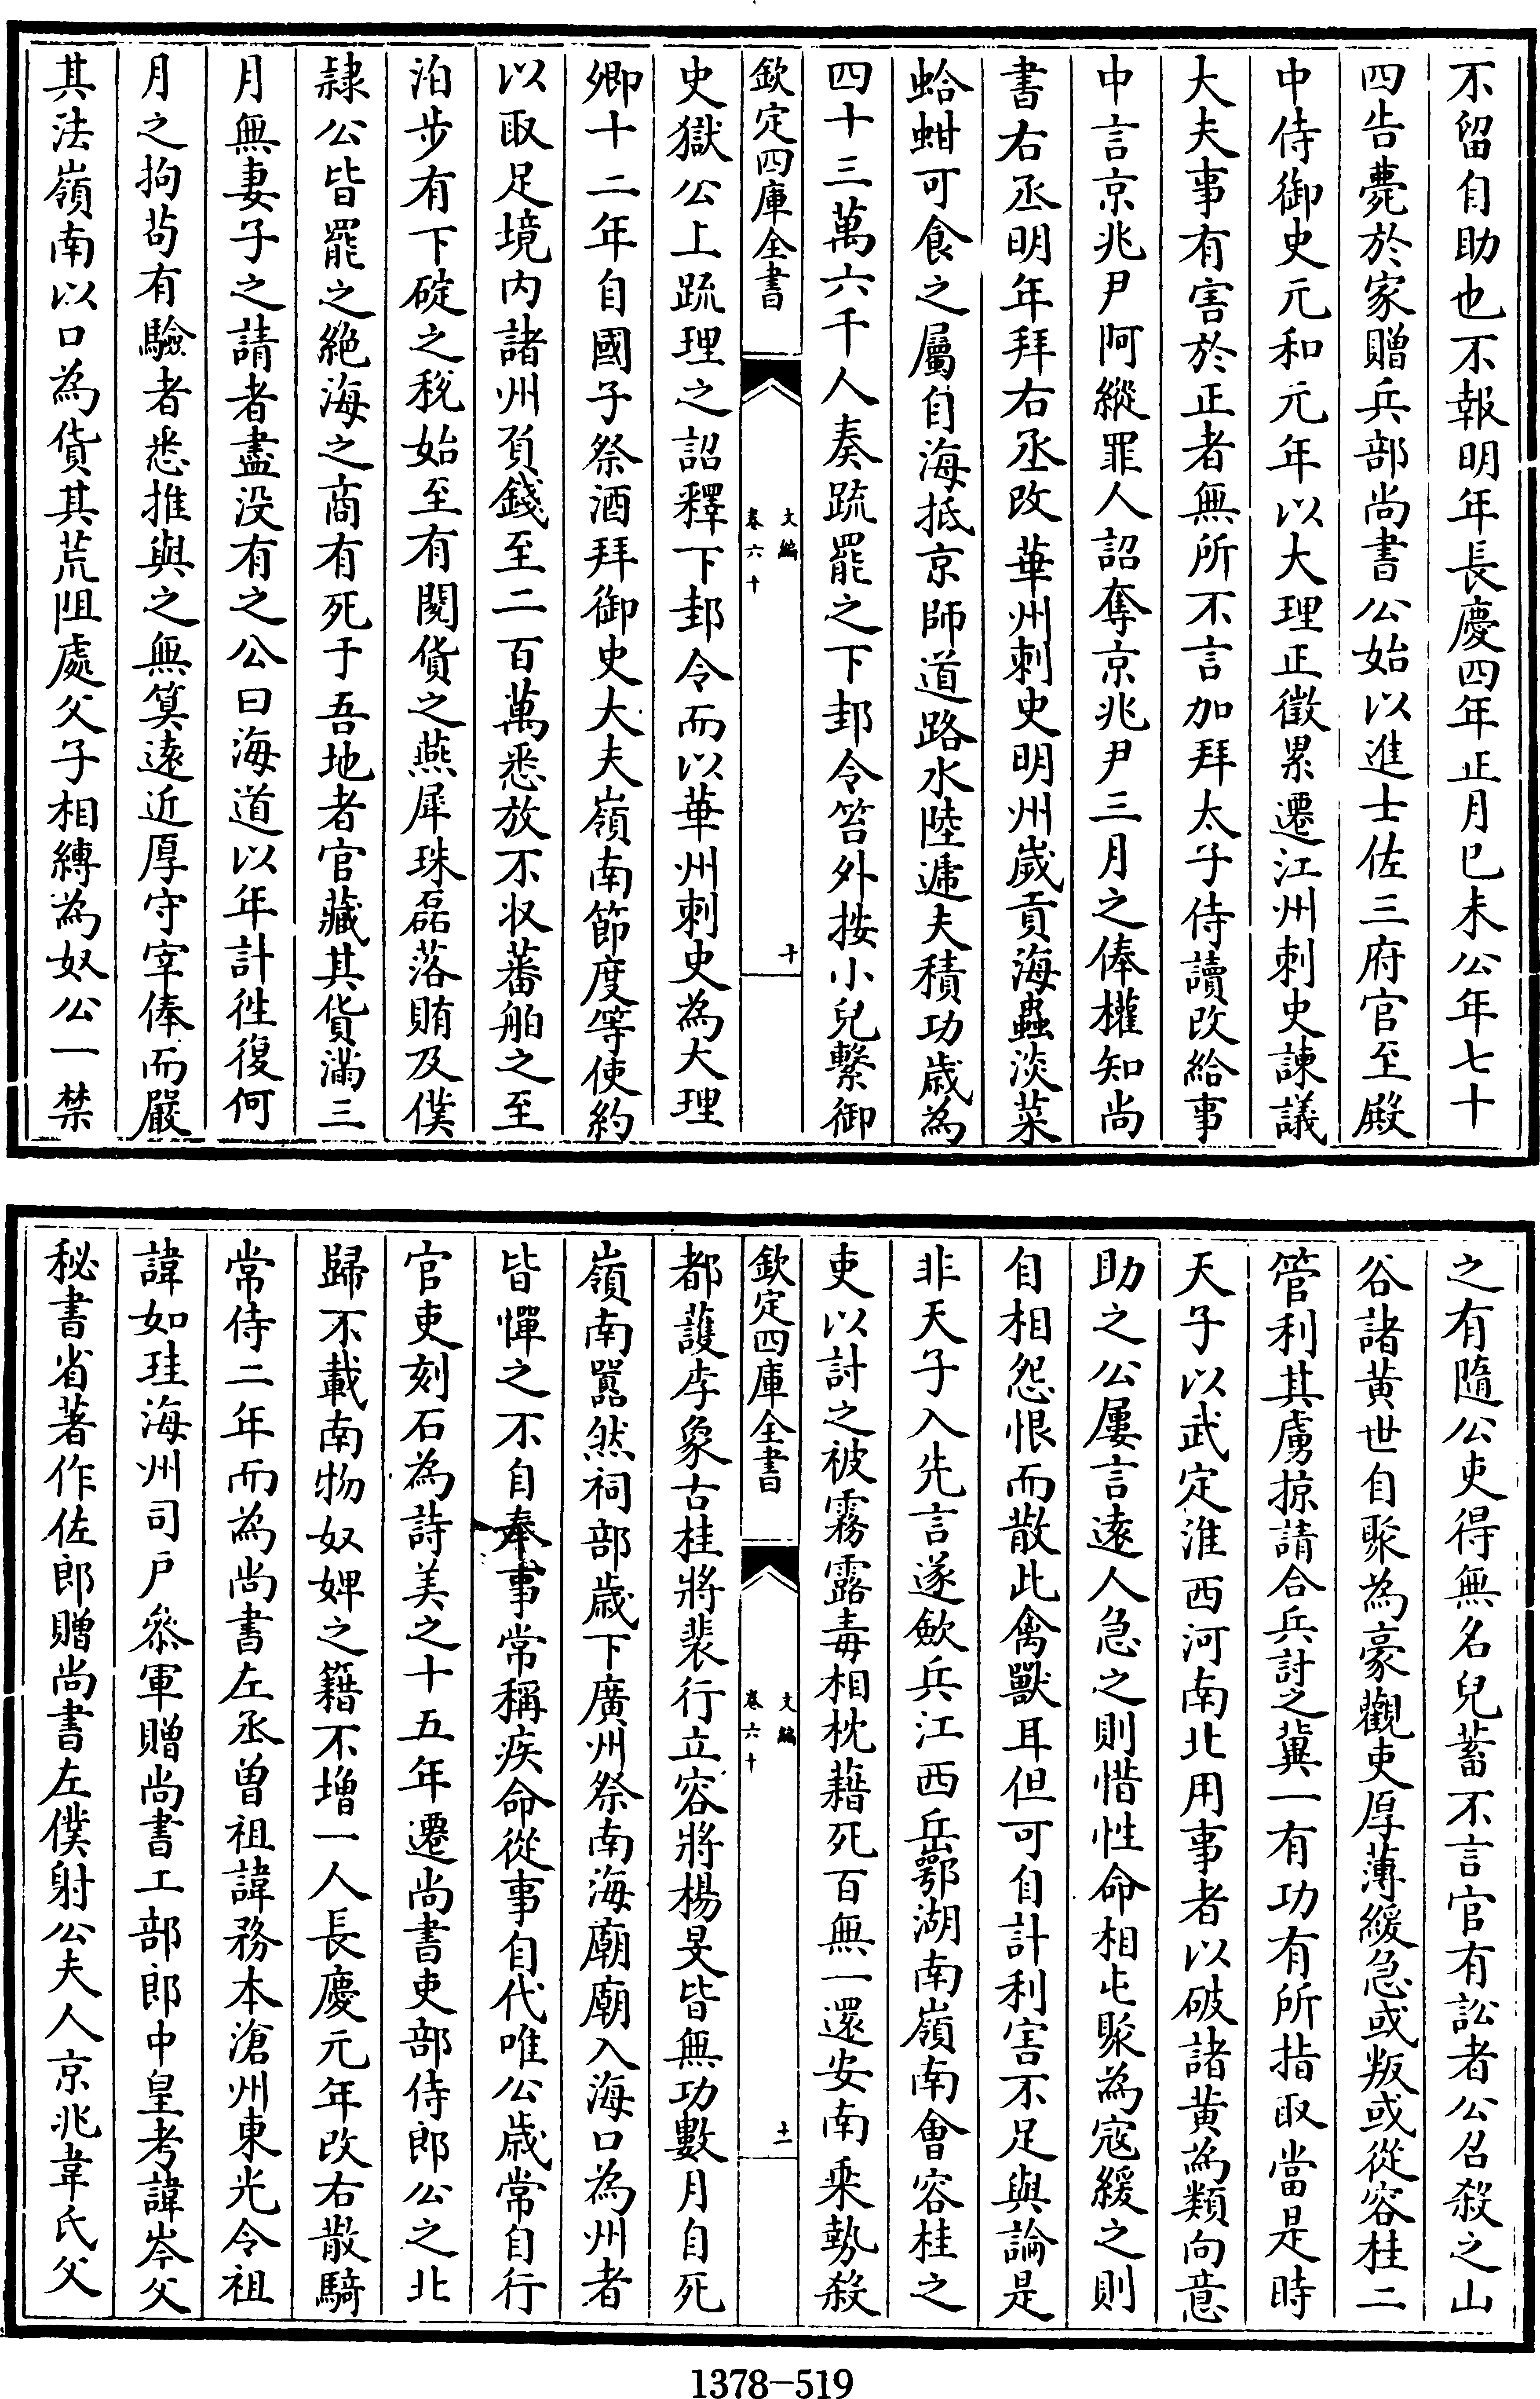 不留自助也不報明年長慶四年正月己未公年七十
四告薨於家贈兵部尚書公始以進士佐三府官至殿
中侍御史元和元年以大理正徵累遷江州刺史諫議
大夫事有害於正者無所不言加拜太子侍讀改給事
中言京兆尹阿縱罪人詔奪京兆尹三月之俸權知尚
書右丞明年拜右丞改華州刺史明州歲貢海蟲淡菜
蛤蚶可食之屬自海抵京師道路水陸遞夫積功歲為
四十三萬六千人奏疏罷之下邽令笞外按小兒繫御
欽定四庫全書
文編
卷六十
十
史獄公上疏理之詔釋下邽令而以華州刺史為大理
卿十二年自國子祭酒拜御史大夫嶺南節度等使約
以取足境內諸州負錢至二百萬悉放不収蕃舶之至
泊步有下碇之稅始至有閱貨之燕犀珠磊落賄及僕
隷公皆罷之絶海之商有死于吾地者官藏其貨滿三
月無妻子之請者盡没有之公曰海道以年計徃復何
月之拘苟有驗者悉推與之無筭逺近厚守宰俸而嚴
其法嶺南以口為貨其荒阻處父子相縛為奴公一禁
之有隨公吏得無名兒蓄不言官有訟者公召殺之山
谷諸黄世自聚為豪觀吏厚薄緩急或叛或從容桂二
管利其虜掠請合兵討之冀一有功有所指取當是時
天子以武定淮西河南北用事者以破諸黄為類向意
助之公屢言逺人急之則惜性命相屯聚為寇緩之則
自相怨恨而散此禽獸耳但可自計利害不足與論是
非天子入先言遂歛兵江西岳鄂湖南嶺南會容桂之
吏以討之被霧露毒相枕藉死百無一還安南乘勢殺
欽定四庫全書
文編
卷六十
十一
都護李象古桂將裴行立容將楊旻皆無功數月自死
嶺南嚣然祠部歲下廣州祭南海廟廟入海口為州者
皆憚之不自奉事常稱疾命從事自代唯公歲常自行
官吏刻石為詩美之十五年遷尚書吏部侍郎公之北
歸不載南物奴婢之籍不增一人長慶元年改右散騎
常侍二年而為尚書左丞曽祖諱務本滄州東光令祖
諱如珪海州司戶叅軍贈尚書工部郎中皇考諱岑父
秘書省著作佐郎贈尚書左僕射公夫人京兆韋氏父
1378-519